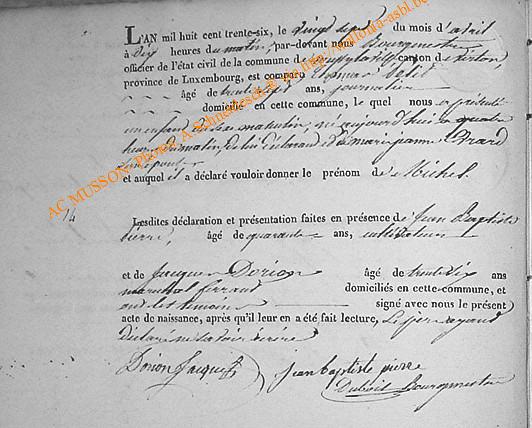 L'AN mil huit cent trente-six, le vingt sept du mois d'avril
à dix heures du matin, par-devant nous Bourgmestre
officier de l'état civil de la commune de canton de Virton,
province de Luxembourg, est comparu
âgé de trente sept ans, journalier
domicilié en cette commune, le quel nous a présenté
un enfant du sexe masculin, né aujourd'hui à quatre
heures du matin, de lui déclarant et de marie jeanne Evrard
son épouse
et auquel il a déclaré vouloir donner le prénom de Michel.
14
Lesdites déclaration et présentation faites en présence de Jean Baptiste
Pierre, âgé de quarante ans,
et de Jacques Dorion âgé de trente six ans
marechal ferrant domiciliés en cette commune, et
ont les temoins signé avec nous le présent
acte de naissance, après qu'il leur en a été fait lecture, Le pere ayant
déclaré ne savoir écrire
Dorion Jacques jean baptiste pierre
Dubois Bourgmestre
AC MUSSON- Photos A Schneidesch Bihain http://www.luxroots.com